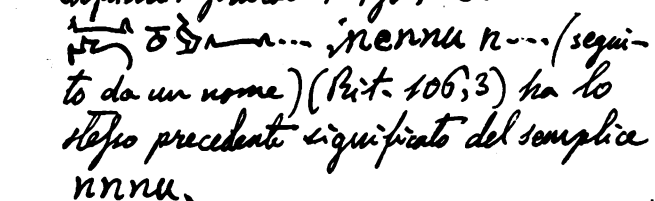 nennu n---- (segui-
to da un nome) (Rit. 106,3) ha lo
stesso precedente significato del semplice
nnnu.